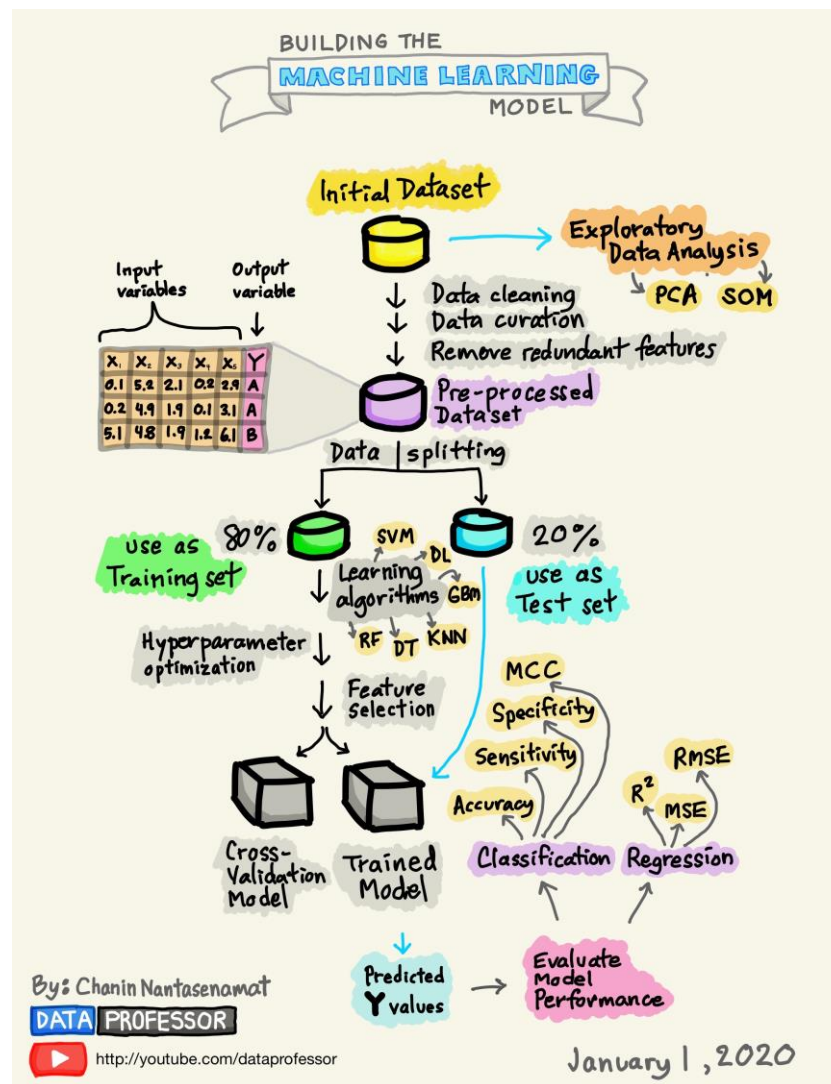 BUILDING THE
MACHINE LEARNING
MODEL
Initial Dataset
Exploratory
Data Analysis
PCA SOM
Input
variables
Output
variable
Data cleaning
Data curation
Remove redundant features
X₁ X₂ X₃ X₄ X₅ Y
0.1 5.2 2.1 0.2 2.9 A
0.2 4.9 1.9 0.1 3.1 A
5.1 4.8 1.9 1.2 6.1 B
Pre-processed
Dataset
Data splitting
80%
use as
Training set
20%
use as
Test set
Learning
algorithms
SVM
DL
GBM
KNN
DT
RF
Hyperparameter
optimization
Feature
selection
Cross-
Validation
Model
Trained
Model
MCC
Specificity
Sensitivity
Accuracy
Classification
RMSE
R²
MSE
Regression
Predicted
Y values
Evaluate
Model
Performance
By: Chanin Nantasenamat
DATA PROFESSOR
http://youtube.com/dataprofessor
January 1, 2020